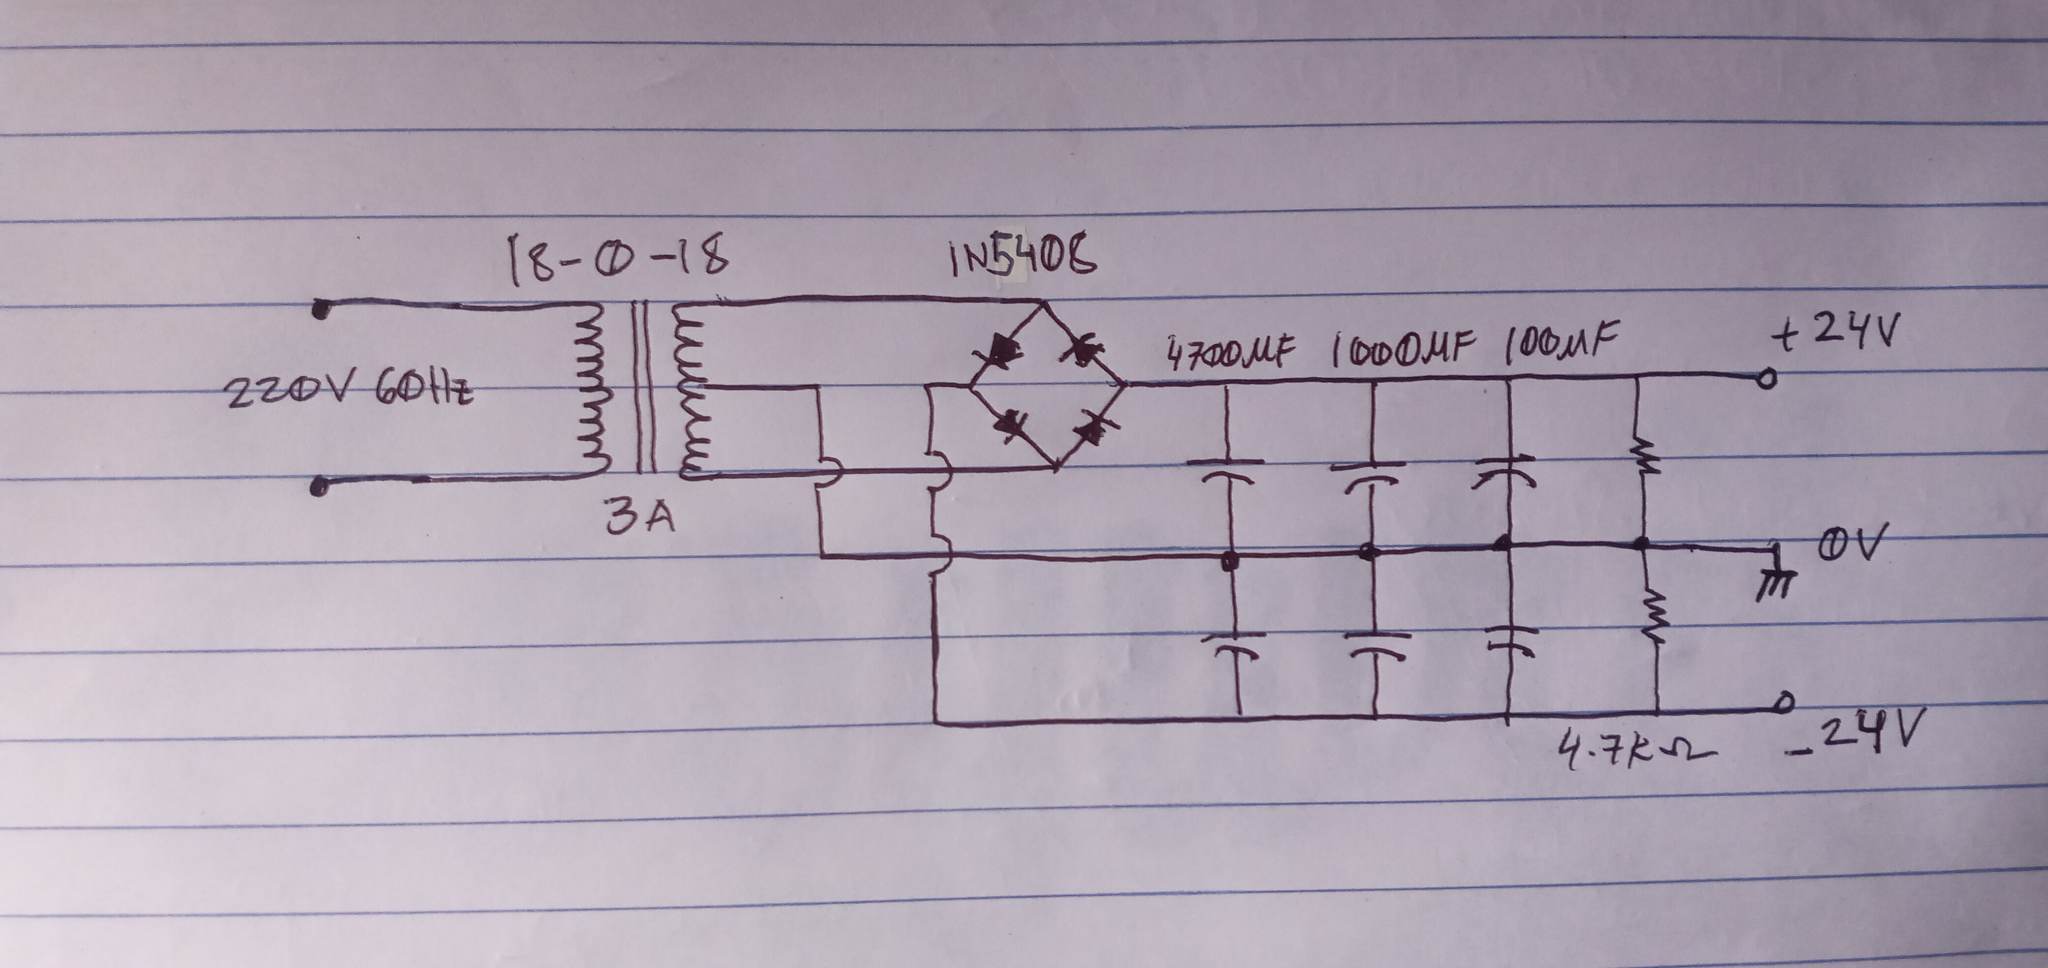 18-0-18
1N5408
220V 60Hz
3A
4700MF 1000MF 100MF
+24V
0V
4.7kΩ
-24V